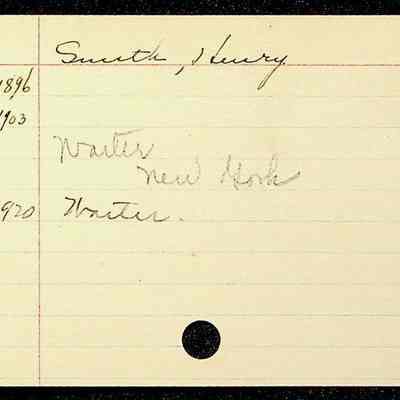 Smith, Henry
1896
1903
Waiter
New York
1920 Waiter.